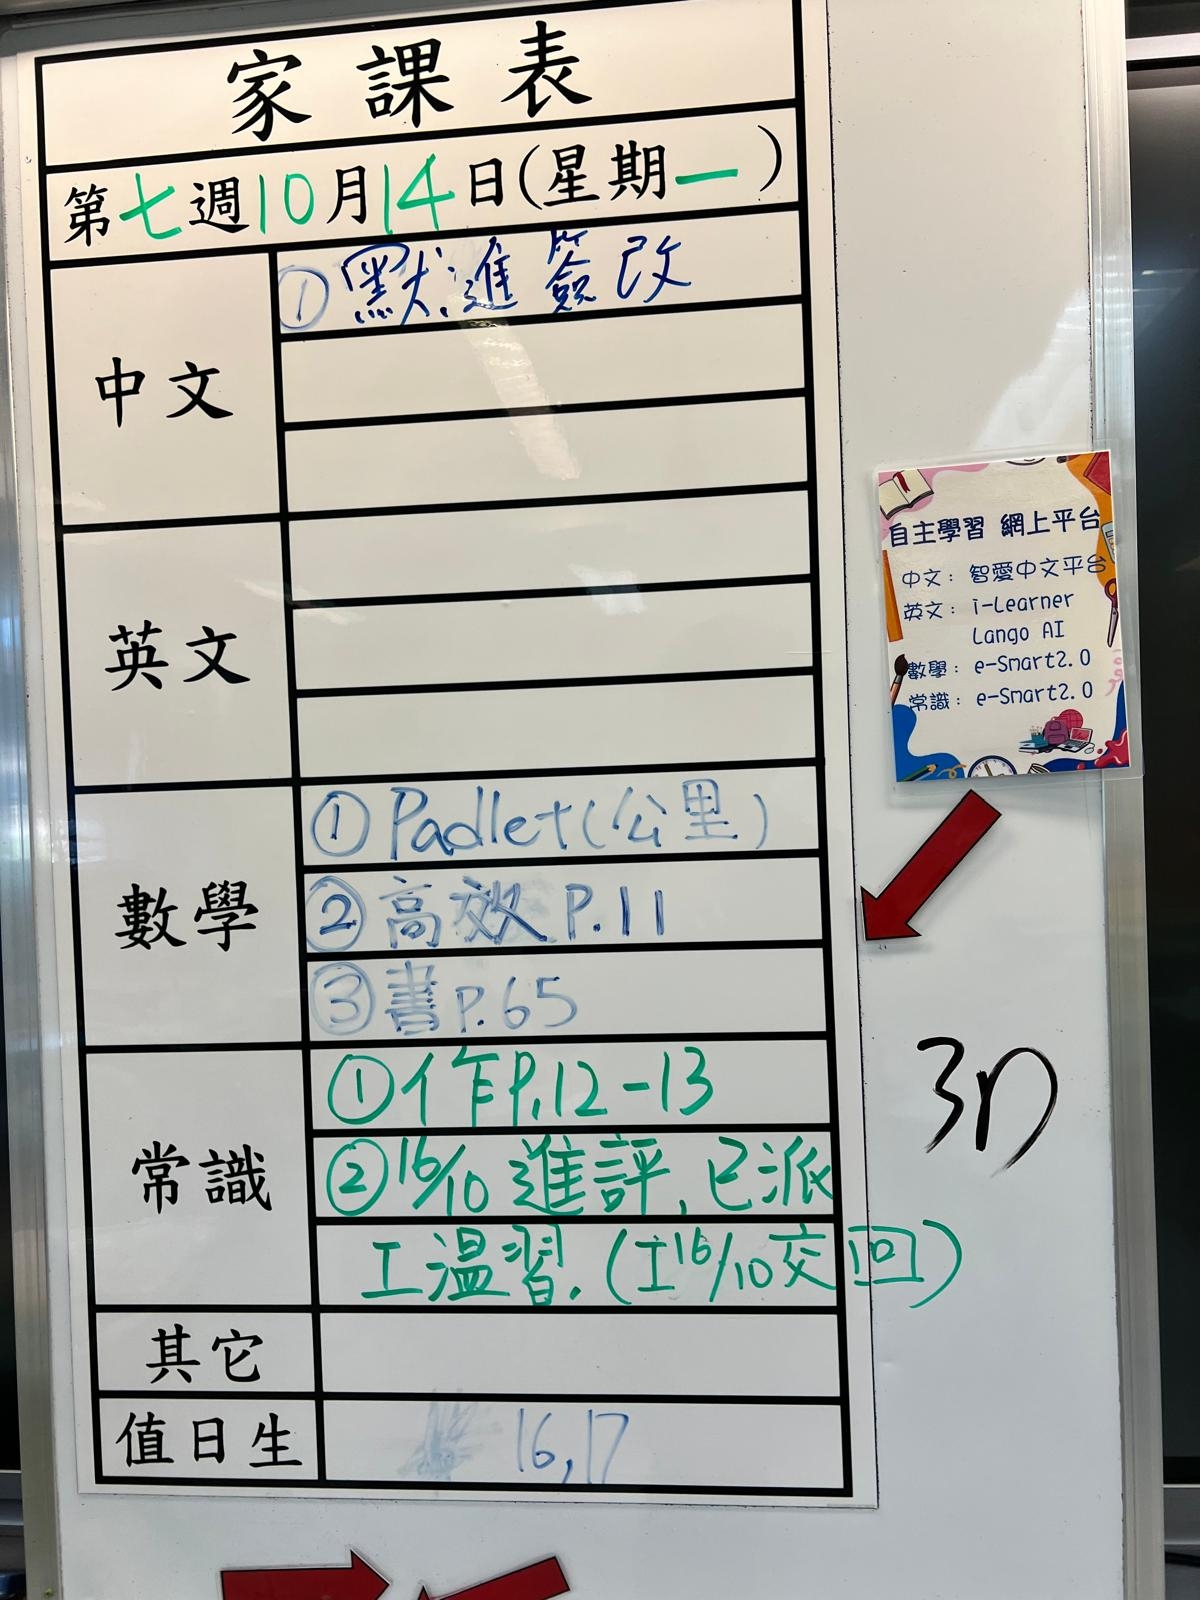 家課表
第七週10月14日(星期一)
中文
①默進簽改
英文
數學
①Padlet(公里)
②高效P.11
③書P.65
常識
①作P.12-13
②16/10進評,已派
工溫習.(工16/10交回)
其它
值日生
16,17
自主學習 網上平台
中文：智愛中文平台
英文：i-Learner
Lango AI
數學：e-Smart2.0
常識：e-Smart2.0